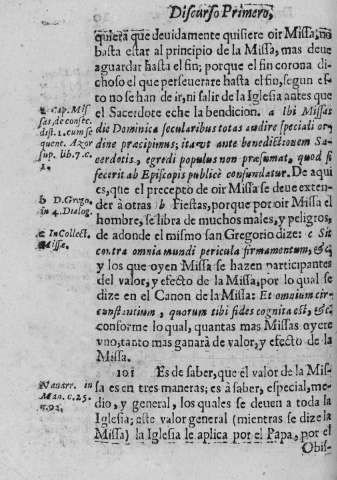 Discurso Primero,
quiera que deuidamente quisiere oir Missa, no
basta estar al principio de la Missa, mas deue
aguardar hasta el fin; porque el fin corona di-
choso el que perseuerare hasta el fin, segun es-
to no se han de ir, ni salir de la Iglesia antes que
el Sacerdore eche la bendicion. a Ibi Missas
die Dominica secularibus totas audire speciali or-
dine præcipimus; ita vt ante benedictionem Sa-
cerdotis, egredi populus non præsumat, quod si
fecerit ab Episcopis publicè confundatur. De aqui
es, que el precepto de oir Missa se deue exten-
der à otras b Fiestas, porque por oir Missa el
hombre, se libra de muchos males, y peligros,
de adonde el mismo san Gregorio dize: c Sit
contra omnia mundi pericula firmamentum, &c;
y los que oyen Missa se hazen participantes
del valor, y efecto de la Missa, por lo qual se
dize en el Canon de la Missa: Et omnium cir-
cunstantium, quorum tibi fides cognita est, &c;
conforme lo qual, quantas mas Missas oyere
vno, tanto mas ganarà de valor, y efecto de la
Missa.
101 Es de saber, que el valor de la Mis-
sa es en tres maneras; es à saber, especial, me-
dio, y general, los quales se deuen a toda la
Iglesia; este valor general (mientras se dize la
Missa) la Iglesia le aplica por el Papa, por el
Obis-
a Cap. Mis-
sas, de consec.
dist. 1. cum se
quent. Azor
sup. lib. 7. c.
b D. Grego.
in 4. Dialog.
c In Collect.
Missæ.
Nauarr. in
Man. c. 25.
n. 92.